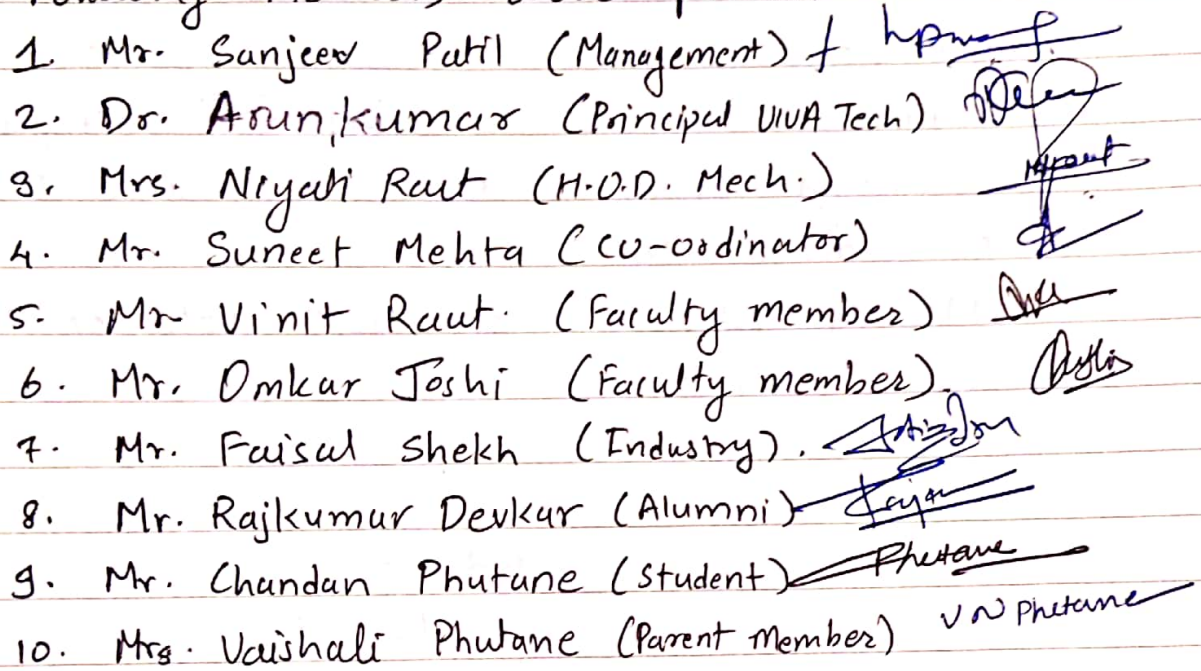 1. Mr. Sanjeev Patil (Management)
2. Dr. Arun kumar (Principal VIVA Tech)
3. Mrs. Niyati Raut (H.O.D. Mech.) Nraut
4. Mr. Suneet Mehta (co-ordinator)
5. Mr Vinit Raut. (Faculty member)
6. Mr. Omkar Joshi (Faculty member).
7. Mr. Faisal Shekh (Industry).
8. Mr. Rajkumar Devkar (Alumni)
9. Mr. Chandan Phutane (Student) Phutane
10. Mrs. Vaishali Phutane (Parent Member) V N Phutane